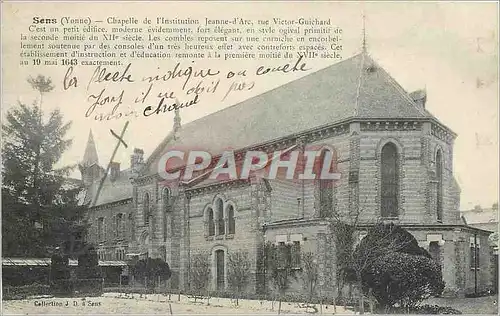 Sens (Yonne) — Chapelle de l'Institution Jeanne-d'Arc, rue Victor-Guichard
C'est un petit édifice, moderne évidemment, fort élégant, en style ogival primitif de
la seconde moitié du XIIe siècle. Les combles reposent sur une corniche en encorbel-
lement soutenue par des consoles d'un très heureux effet avec contreforts espacés. Cet
établissement d'instruction et d'éducation remonte à la première moitié du XVIIe siècle,
au 19 mai 1643 exactement.
La flèche indique où couche
il ne doit pas
avoir chaud
CPARHIL.COM
Collection J. D. à Sens